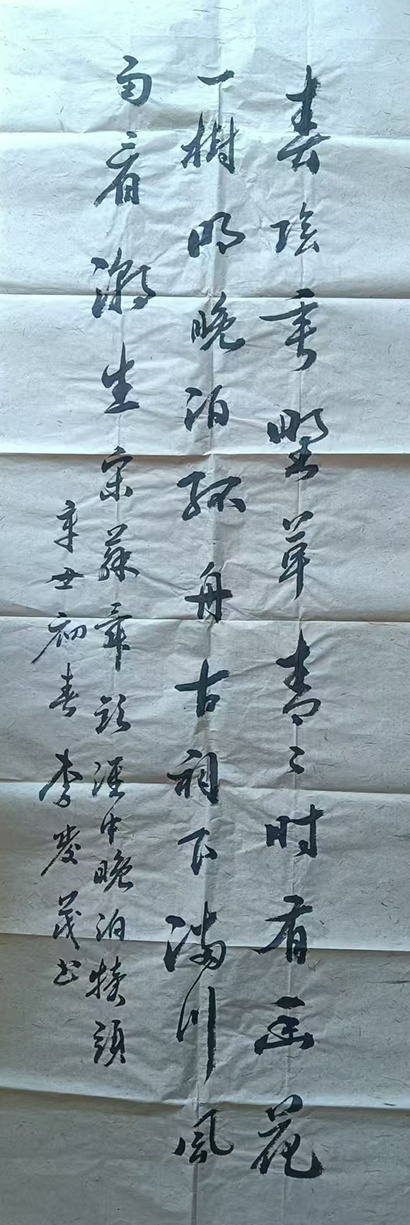 春陰垂野草青々时有幽花
一樹明晚泊孤舟古祠下满川風
雨看潮生宋蘇舜欽淮中晚泊犢頭
辛丑初春李茂书